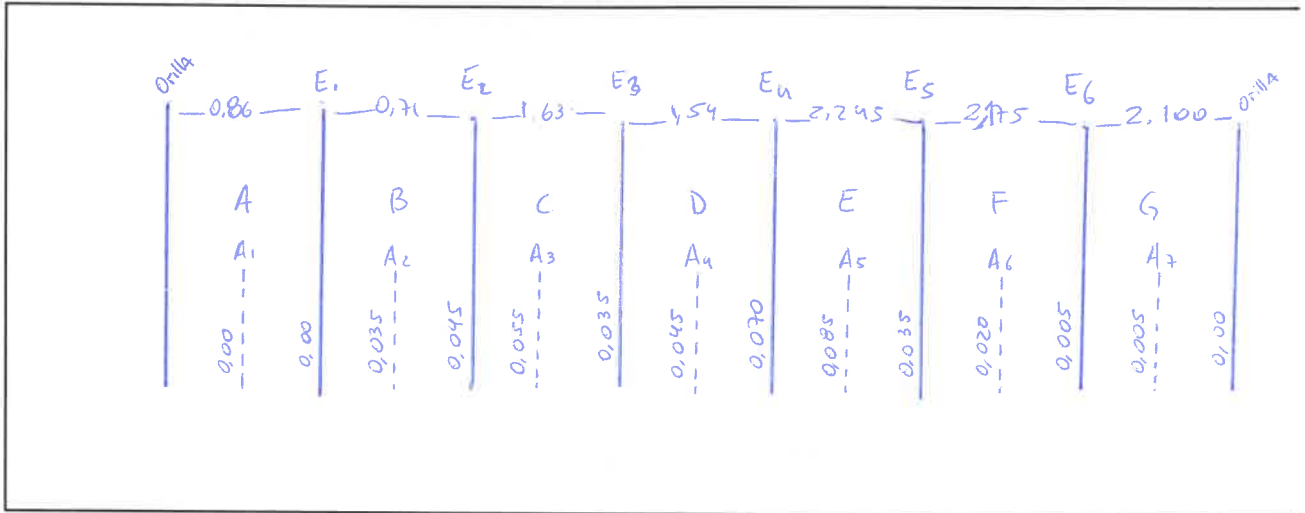 Orilla E1 E2 E3 E4 E5 E6 Orilla
0,86 0,71 1,63 1,54 2,245 2,175 2,100
A B C D E F G
A1 A2 A3 A4 A5 A6 A7
0,00 0,00 0,035 0,045 0,055 0,035 0,045 0,070 0,085 0,035 0,020 0,005 0,005 0,00